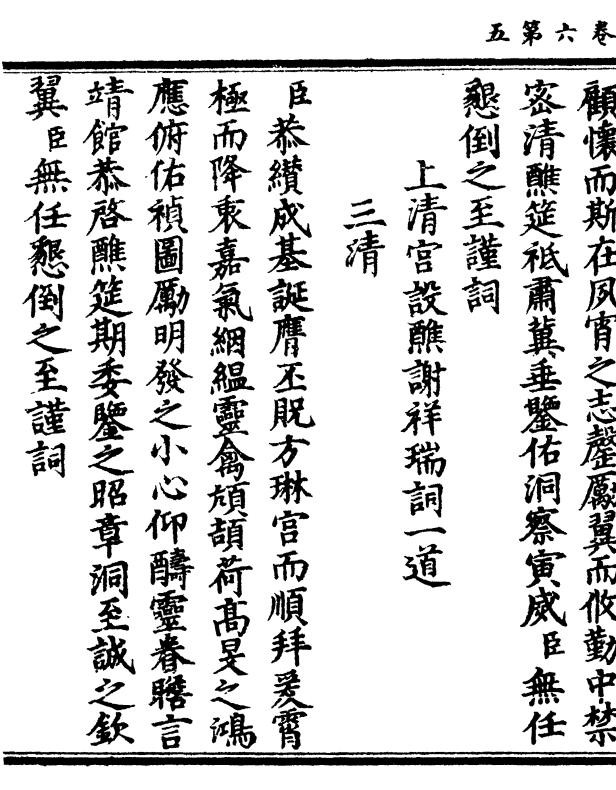 卷六第五
顧懷而斯在夙宵之志罄厲翼而攸勤中禁
宻清醮筵祗肅冀垂鑒佑洞察寅威臣無任
懇倒之至謹詞
上清宮設醮謝祥瑞詞一道
三清
臣恭纘成基誕膺丕貺方琳宮而順拜爰霄
極而降衷嘉氣絪縕靈禽頏頡荷髙旻之鴻
應俯佑禎圖勵明發之小心仰醻靈眷瞻言
靖館恭啓醮筵期委鑒之昭章洞至誠之欽
翼臣無任懇倒之至謹詞